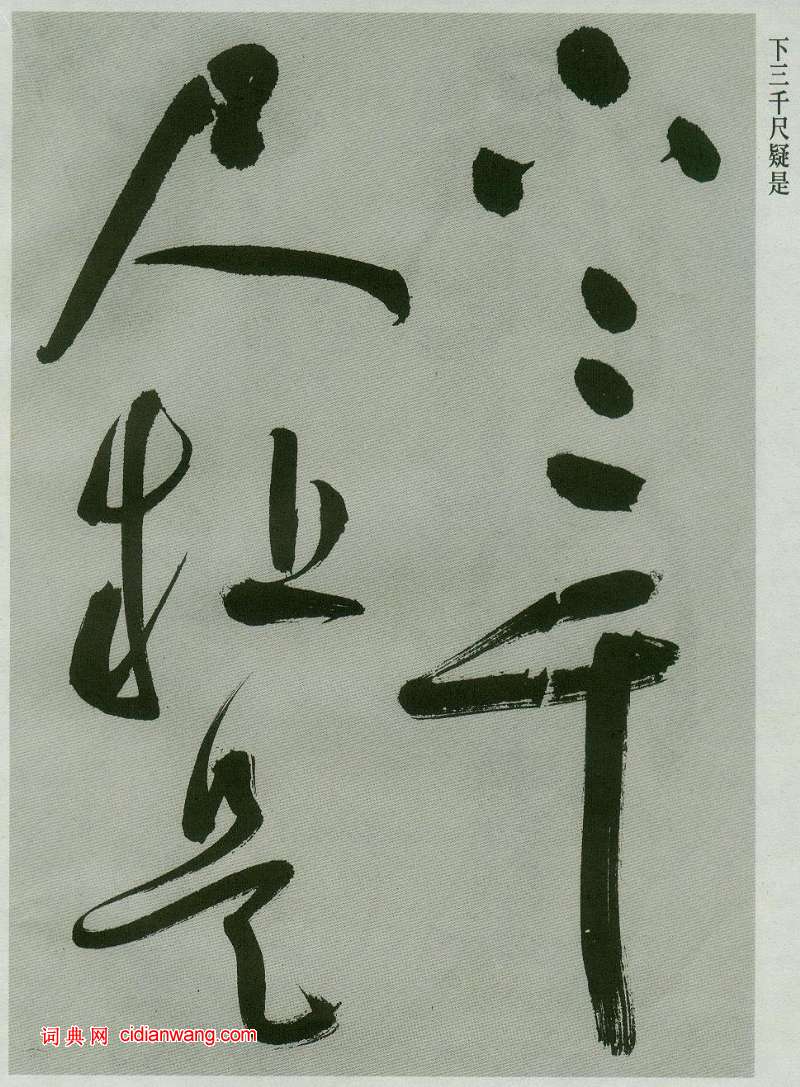 下三千
尺疑是
下三千尺疑是
词典网 cidianwang.com